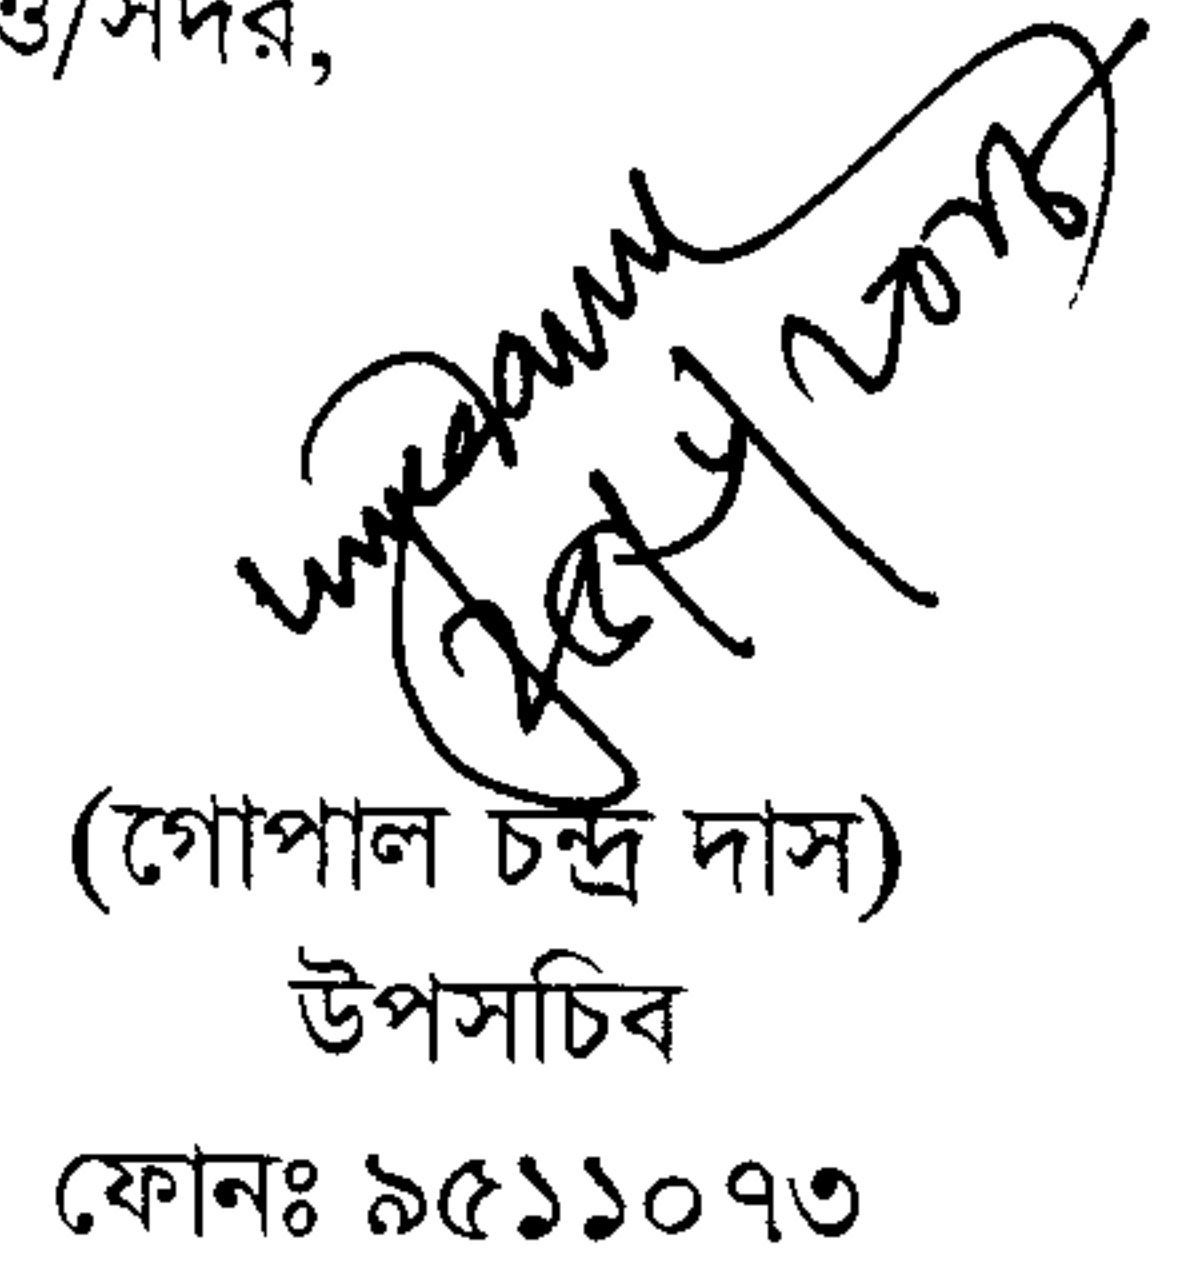 /সদর,
(গোপাল চন্দ্র দাস)
উপসচিব
ফোনঃ ৯৫১১০৭৩